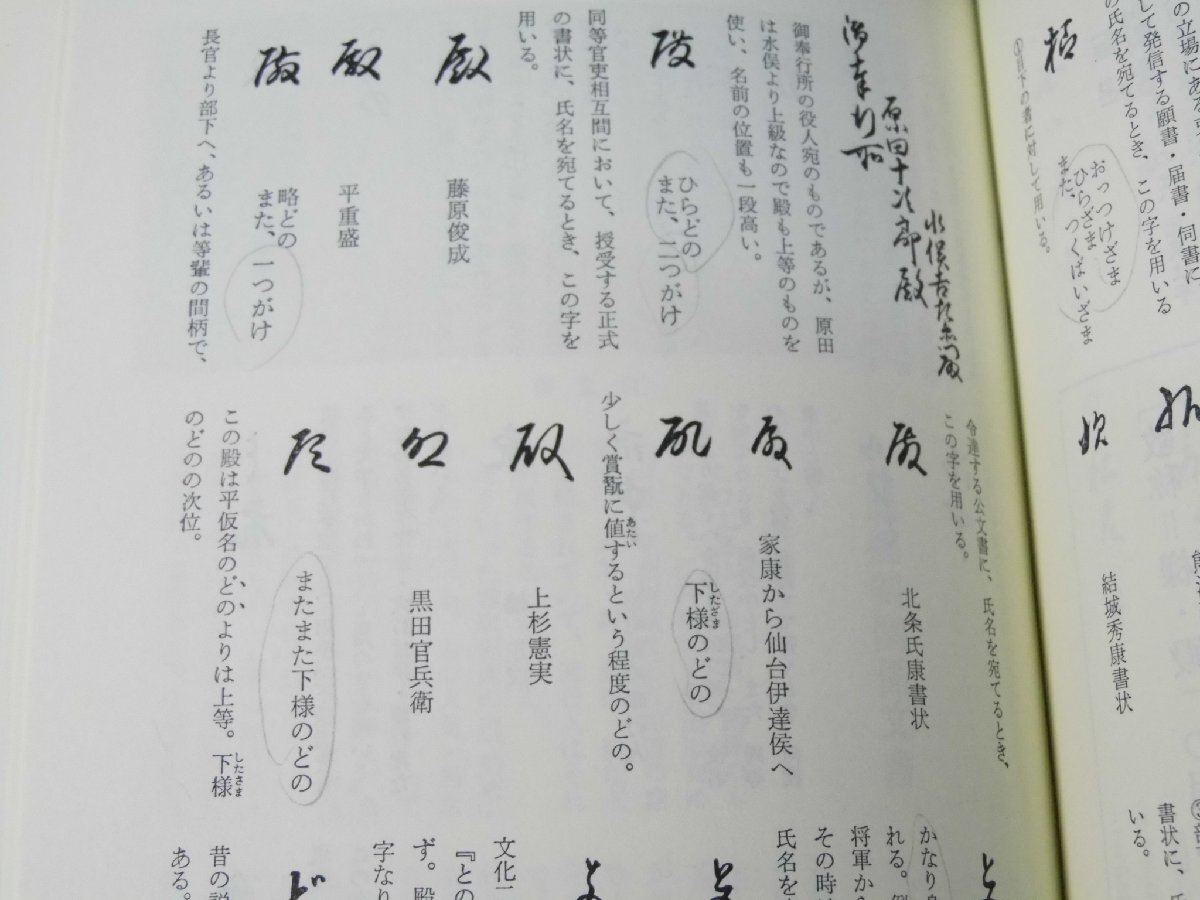 の立場にある
して発信する願書・届書・伺書に
の氏名を宛てるとき、この字を用いる
おっつけざま
ひらざま
また、つくばいざま
に対して用いる。
結城秀康書状
書状に、
いる。
御奉行所
原田十次郎殿
御奉行所の役人宛のものであるが、原田
は水俣より上級なので殿も上等のものを
使い、名前の位置も一段高い。
殿
ひらどの
また、二つがけ
同等官吏相互間において、授受する正式
の書状に、氏名を宛てるとき、この字を
用いる。
殿
藤原俊成
殿
平重盛
殿
略どの
また、一つがけ
長官より部下へ、あるいは等輩の間柄で、
令達する公文書に、氏名を宛てるとき、
この字を用いる。
殿
北条氏康書状
殿
家康から仙台伊達侯へ
殿
下様のどの
したざま
少しく賞翫に値するという程度のどの。
あたい
殿
上杉憲実
殿
黒田官兵衛
殿
またまた下様のどの
この殿は平仮名のどのよりは上等。下様
したさま
のどのの次位。
かなり
れる。
将軍か
その時
氏名を
文化
ず。殿
『との
字なり
昔の説
ある。